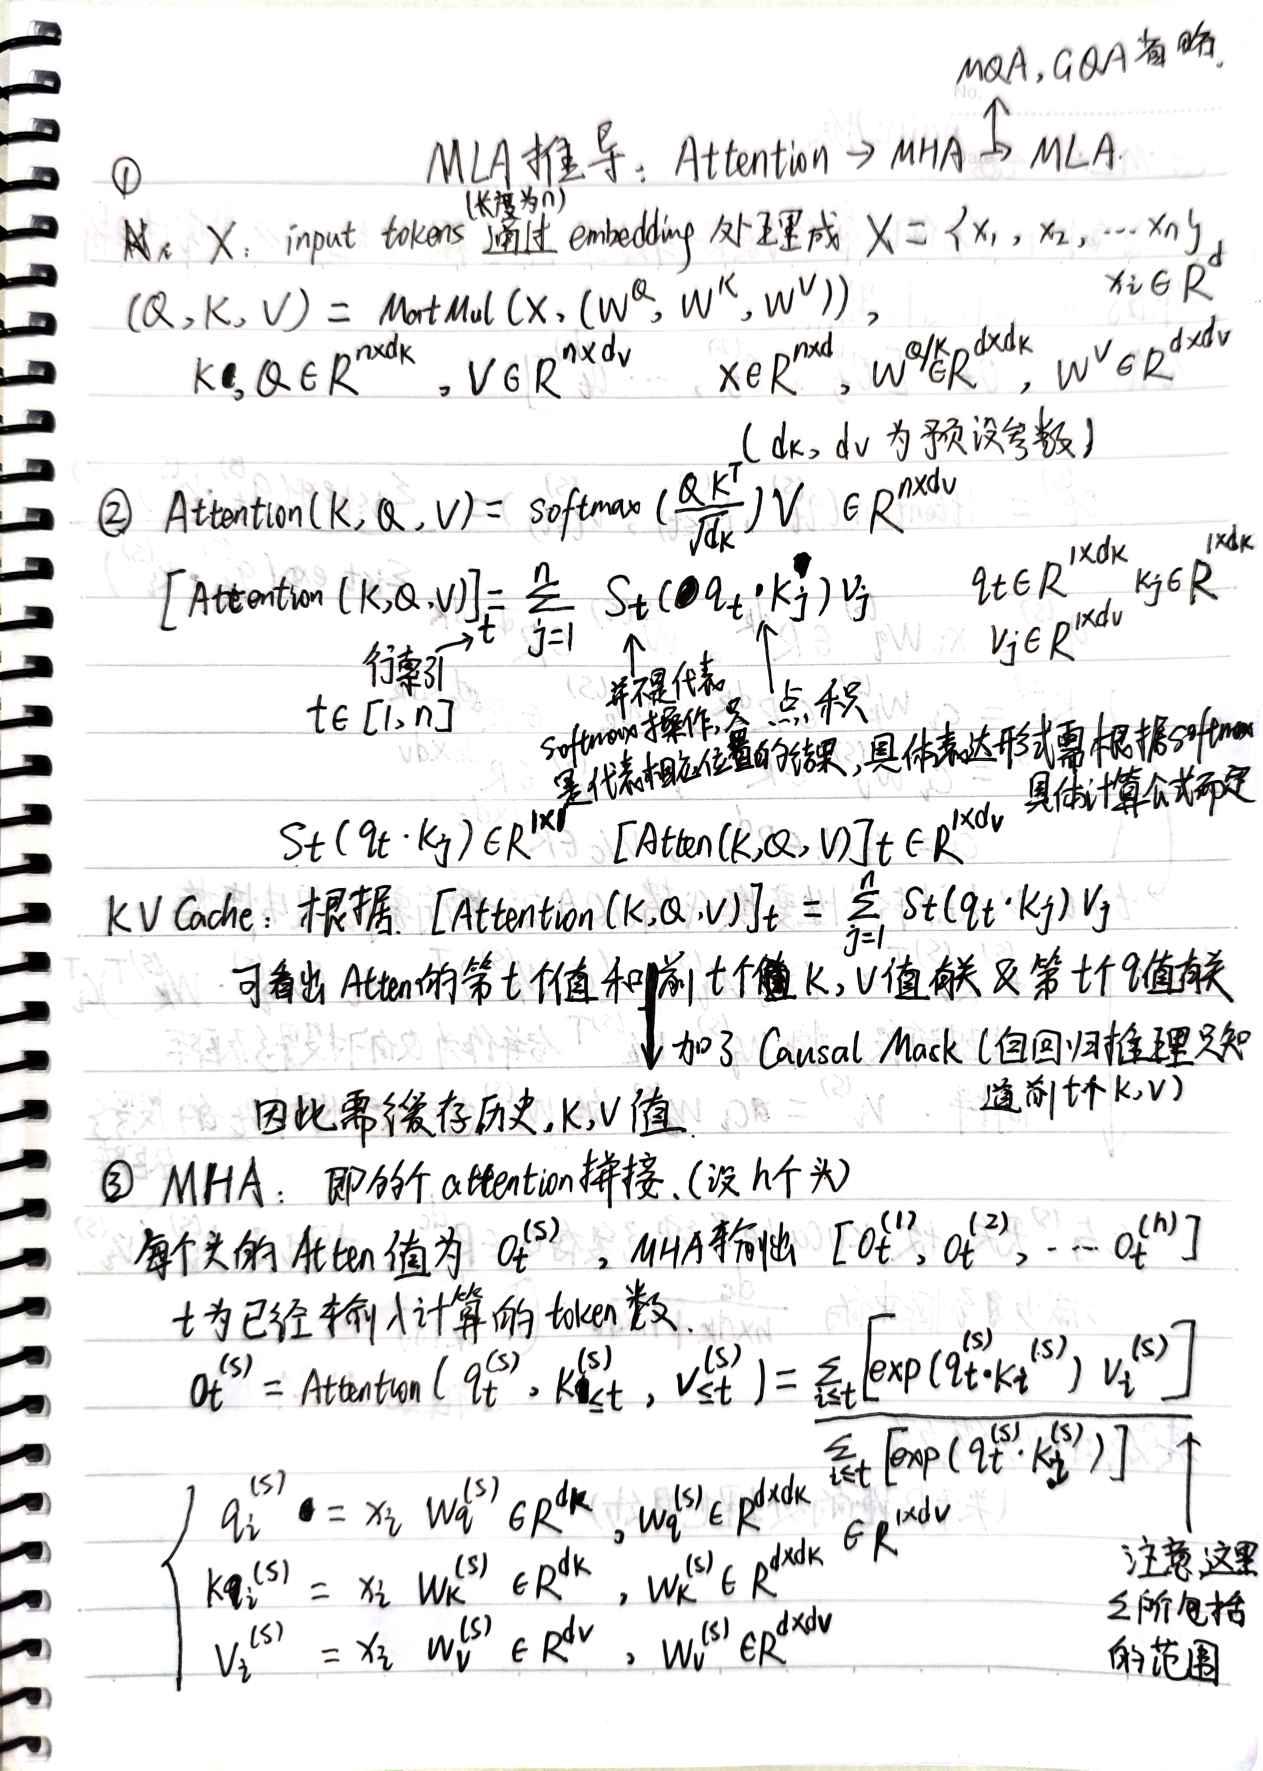 MQA, GQA省略。
↑
MLA推导: Attention → MHA → MLA.
①
(长度为n)
X: input tokens 通过 embedding 处理成 X = {x₁, x₂, ⋯ xₙ}
(Q, K, V) = MatMul(X, (W^Q, W^K, W^V)), xᵢ ∈ R^d
K, Q ∈ R^{n×dk}, V ∈ R^{n×dv} X ∈ R^{n×d}, W^{Q/K} ∈ R^{d×dk}, W^V ∈ R^{d×dv}
(dk, dv 为预设参数)
② Attention(K, Q, V) = softmax(QK^T/√dk)V ∈ R^{n×dv}
[Attention(K,Q,V)]_t = Σ_{j=1}^{n} S_t(q_t·k_j)v_j q_t ∈ R^{1×dk} k_j ∈ R^{1×dk}
v_j ∈ R^{1×dv}
行索引 →
t ∈ [1, n]
↑ 并不是代表
softmax操作,只
是代表相应位置的结果,具体表达形式需根据softmax
具体计算公式而定
↑ 点积
S_t(q_t·k_j) ∈ R^{1×1} [Atten(K,Q,V)]_t ∈ R^{1×dv}
KV Cache: 根据 [Attention(K,Q,V)]_t = Σ_{j=1}^{n} S_t(q_t·k_j)v_j
可看出 Atten的第t个值和前t个 K, V值有关 & 第t个q值有关
↓ 加了 Causal Mask (自回归推理只知
道前t个 K, V)
因此需缓存历史,K,V值
③ MHA: 即多个 attention拼接.(设h个头)
每个头的 Atten值为 o_t^{(s)}, MHA输出 [o_t^{(1)}, o_t^{(2)}, ⋯ o_t^{(h)}]
t为已经输入计算的token数.
o_t^{(s)} = Attention(q_t^{(s)}, k_{≤t}^{(s)}, v_{≤t}^{(s)}) = Σ_{i≤t}[exp(q_t^{(s)}·k_i^{(s)}) v_i^{(s)}] / Σ_{i≤t}[exp(q_t^{(s)}·k_i^{(s)})]
∈ R^{1×dv}
q_i^{(s)} = x_i W_q^{(s)} ∈ R^{dk}, W_q^{(s)} ∈ R^{d×dk}
k_i^{(s)} = x_i W_k^{(s)} ∈ R^{dk}, W_k^{(s)} ∈ R^{d×dk}
v_i^{(s)} = x_i W_v^{(s)} ∈ R^{dv}, W_v^{(s)} ∈ R^{d×dv}
↑
注意这里
Σ所包括
的范围